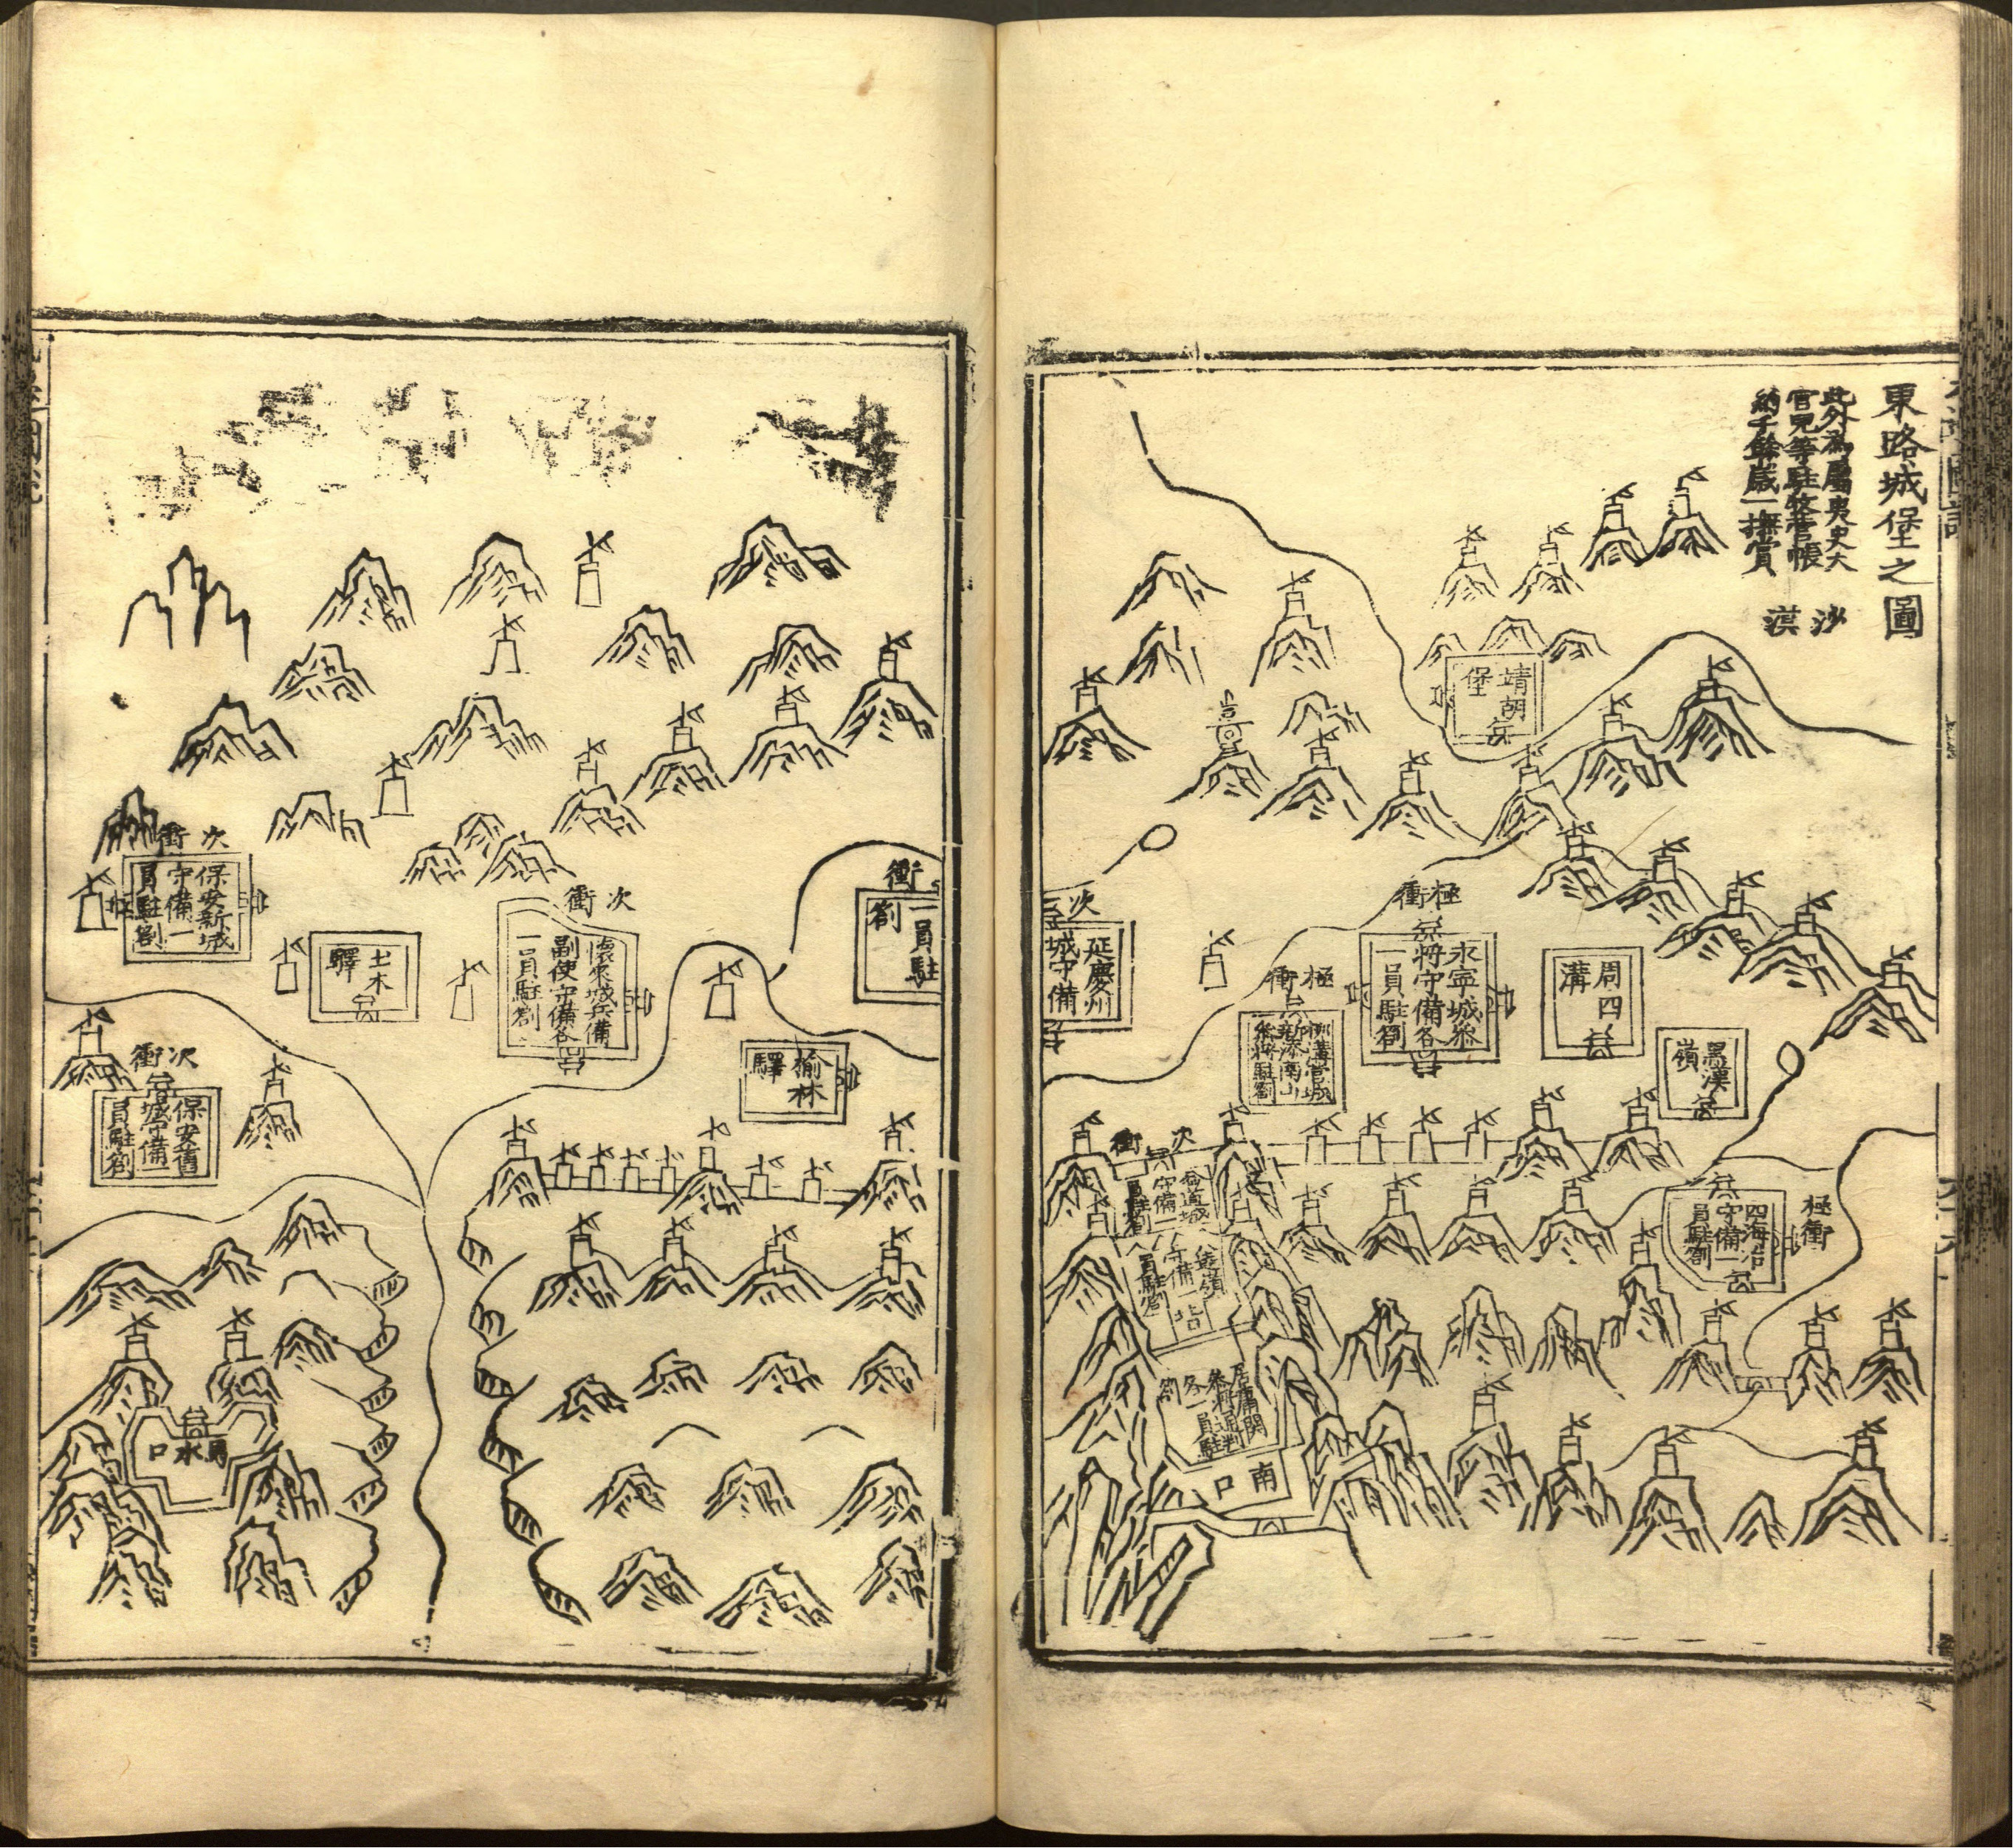 東路城堡之圖
此外為屬夷史大
官兒等駐牧營帳
納千餘歲一撫賞
沙漠
靖胡堡
極衝
永寧城叅
將守備各
一員駐劄
周四溝
黑漢嶺
極衝
四海冶
守備一
員駐劄
極衝
柳溝營城
新添南山
叅將駐劄
次
延慶州
城守備
次衝
守備一
員駐劄
守備一
員駐劄
居庸關
叅將通判
各一員駐
劄
南口
衝
一員駐
劄
榆林驛
次衝
懷來城兵備
副使守備各
一員駐劄
土木驛
次衝
保安新城
守備一
員駐劄
次衝
保安舊
城守備一
員駐劄
馬水口